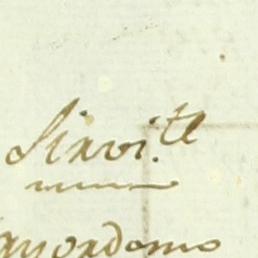 Sirvi.te
ayordomo